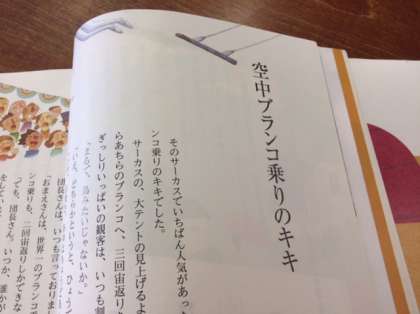 空中ブランコ乗りのキキ
そのサーカスでいちばん人気があった
ンコ乗りのキキでした。
サーカスの、大テントの見上げるよ
らあちらのブランコへ、三回宙返りを
ぎっしりいっぱいの観客は、いつも割
「まるで、鳥みたいじゃないか。」
「いえ、どちらかというと、ひょう
団長さんは、いつも言っておりま
「おまえさんは、世界一のブランコ
ンコ乗りも、三回宙返りしかできな
「でも、団長さん。いつか、誰かが